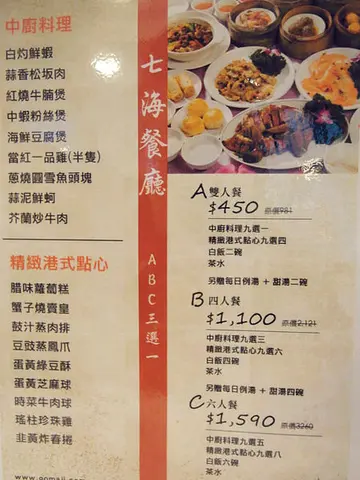 中廚料理
白灼鮮蝦
蒜香松坂肉
紅燒牛腩煲
中蝦粉絲煲
海鮮豆腐煲
當紅一品雞(半隻)
蔥燒圓雪魚頭塊
蒜泥鮮蚵
芥蘭炒牛肉
精緻港式點心
腊味蘿蔔糕
蟹子燒賣皇
鼓汁蒸肉排
豆豉蒸鳳爪
蛋黃綠豆酥
蛋黃芝麻球
時菜牛肉球
瑤柱珍珠雞
韭黃炸春捲
七海餐廳
ABC三選一
A雙人餐
$450 原價981
中廚料理九選一
精緻港式點心九選四
白飯二碗
茶水
另贈每日例湯 + 甜湯二碗
B四人餐
$1,100 原價2,121
中廚料理九選三
精緻港式點心九選六
白飯四碗
茶水
另贈每日例湯 + 甜湯四碗
C六人餐
$1,590 原價3260
中廚料理九選五
精緻港式點心九選八
白飯六碗
茶水